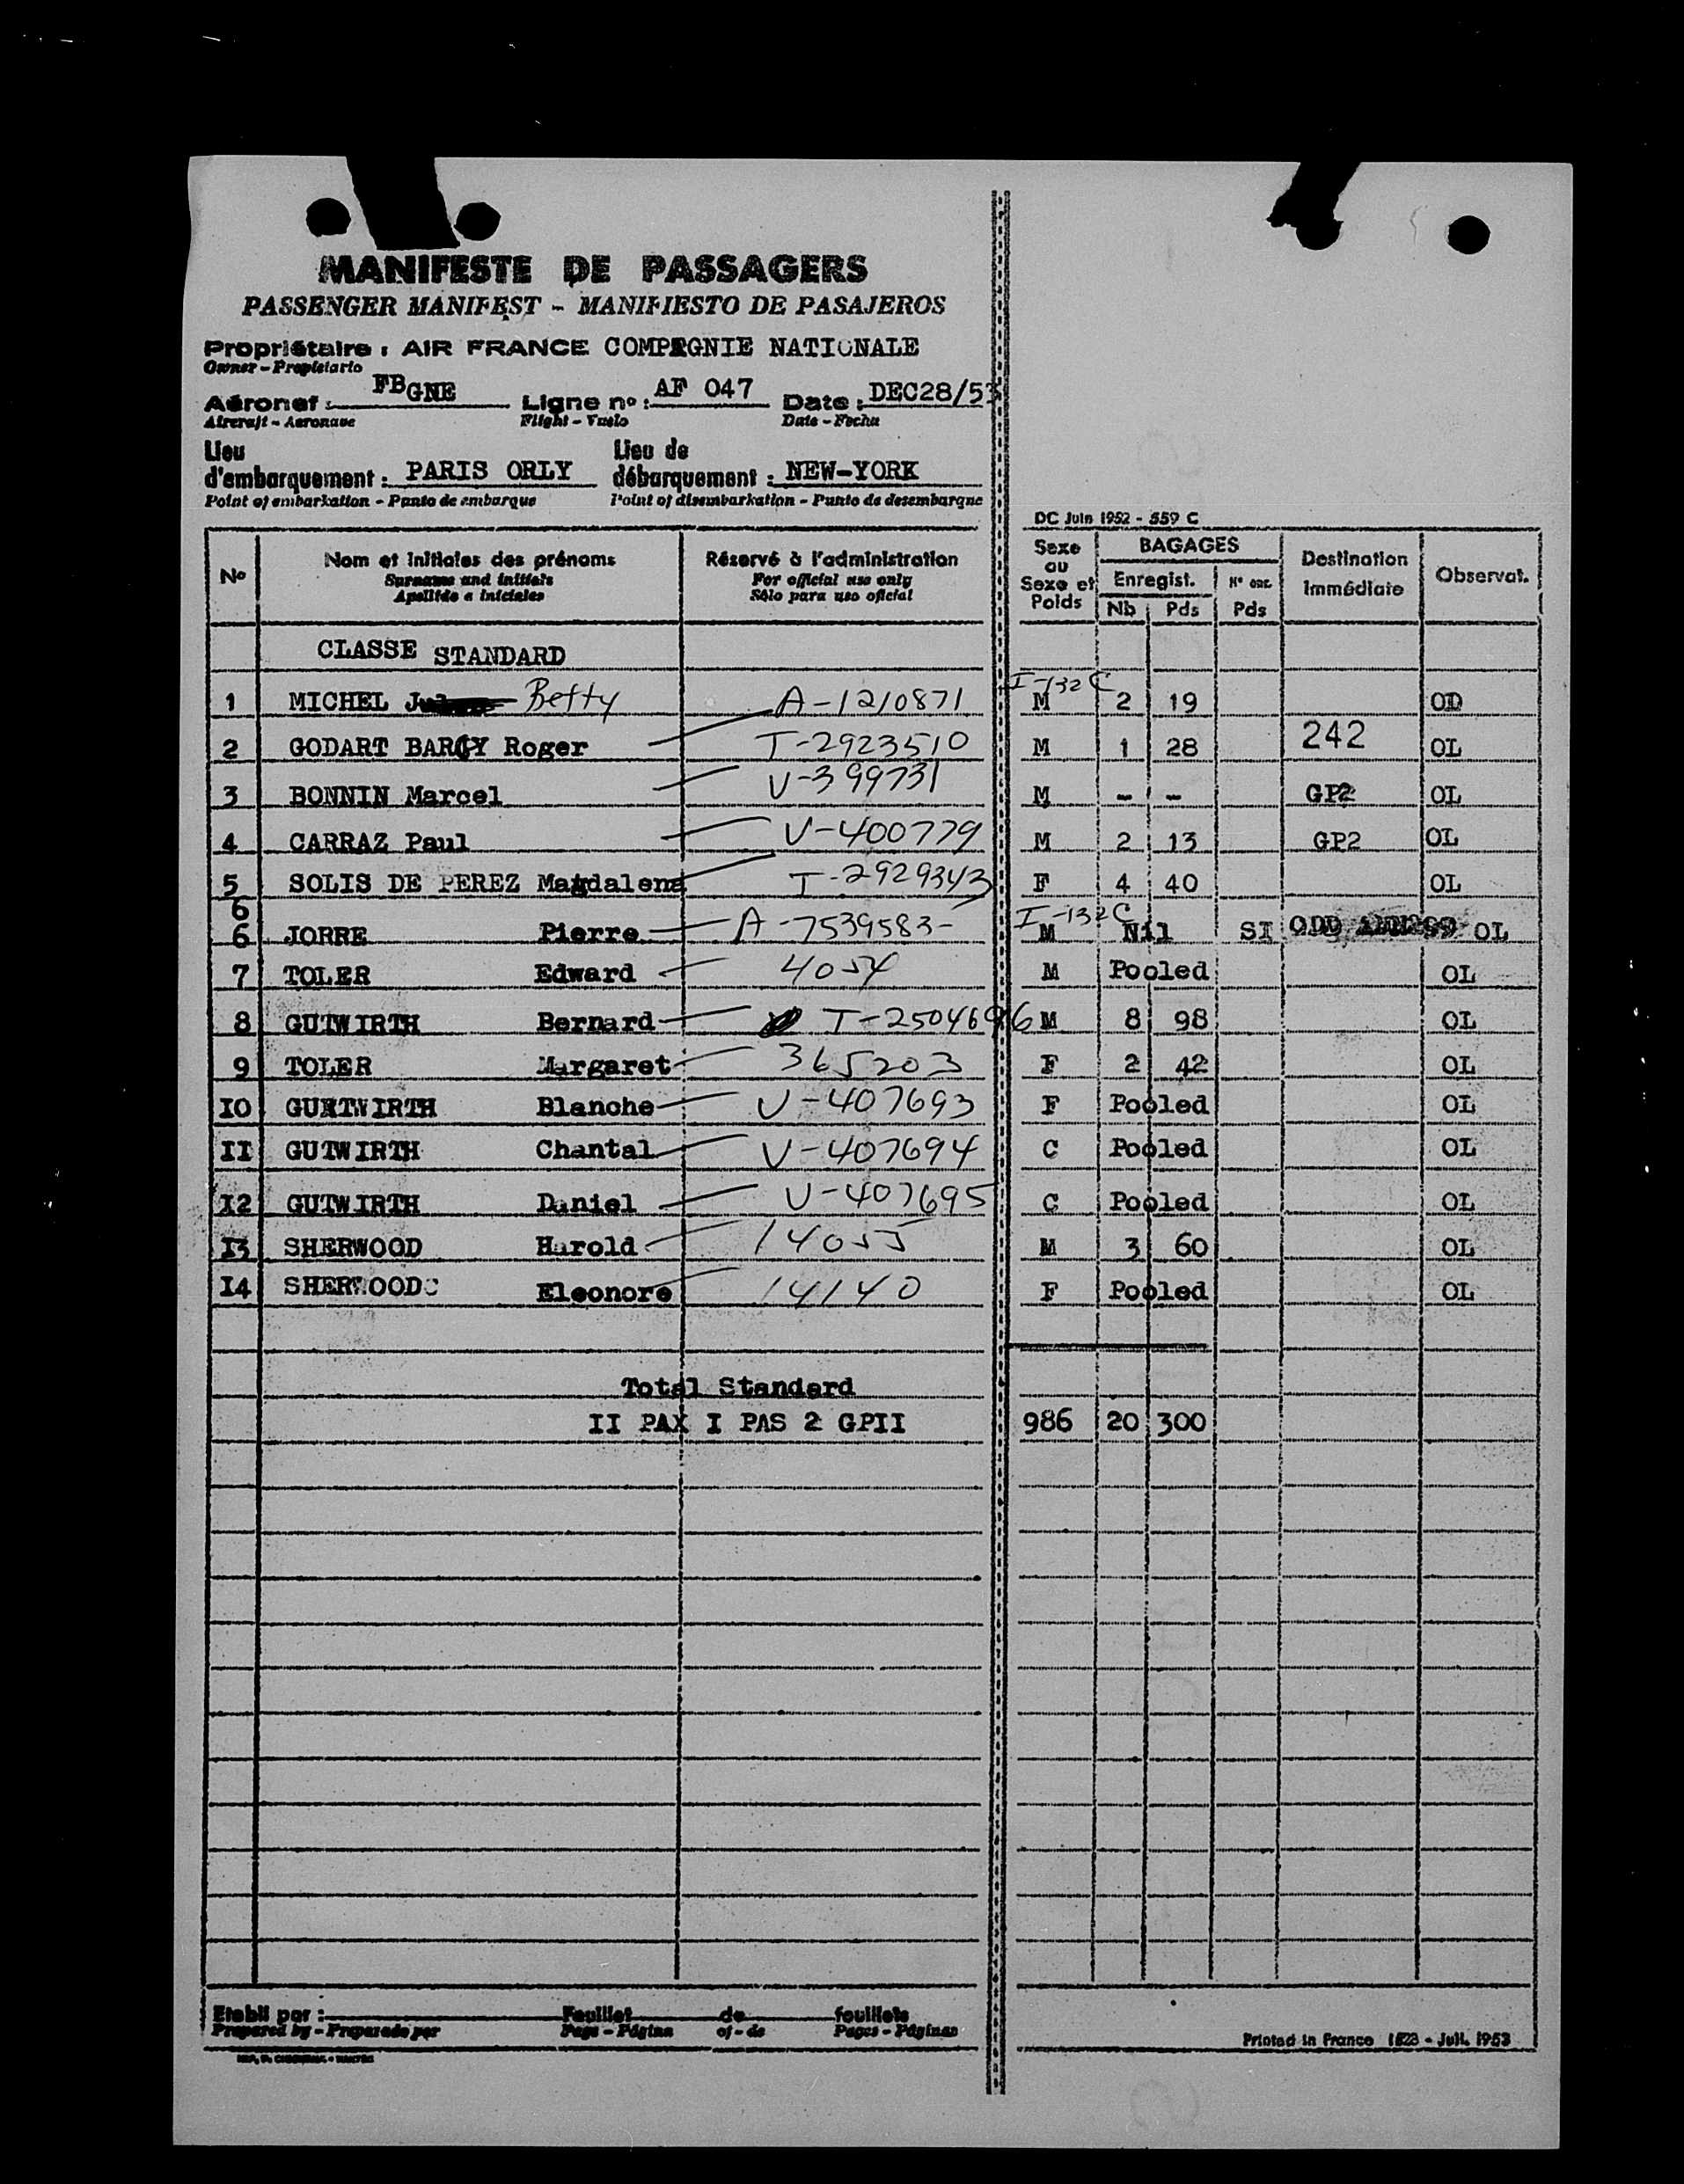 MANIFESTE DE PASSAGERS
PASSENGER MANIFEST - MANIFIESTO DE PASAJEROS
Propriétaire : AIR FRANCE COMPAGNIE NATIONALE
Owner - Propietario
Aéronef : FBGNE Ligne nº : AF 047 Date : DEC28/53
Aircraft - Aeronave Flight - Vuelo Date - Fecha
Lieu d'embarquement : PARIS ORLY Lieu de débarquement : NEW-YORK
Point of embarkation - Punto de embarque Point of disembarkation - Punto de desembarque
DC Juin 1952 - 559 C
Nº Nom et initiales des prénoms Réservé à l'administration Sexe ou Sexe et Poids BAGAGES Destination Immédiate Observat.
Surnames and initials For official use only Enregist. Nº enr.
Apellido e iniciales Sólo para uso oficial Nb Pds Pds
CLASSE STANDARD
1 MICHEL Betty A-1210871 I-132C M 2 19 OD
2 GODART BARCY Roger T-2923510 M 1 28 242 OL
3 BONNIN Marcel V-399731 M - - GP2 OL
4 CARRAZ Paul V-400779 M 2 13 GP2 OL
5 SOLIS DE PEREZ Magdalena T-2929343 F 4 40 OL
6
6 JORRE Pierre A-7539583- I-132C M Nil SI ODD OL
7 TOLER Edward 4054 M Pooled OL
8 GUTWIRTH Bernard T-2504696 M 8 98 OL
9 TOLER Margaret 365203 F 2 42 OL
I0 GUTWIRTH Blanche V-407693 F Pooled OL
II GUTWIRTH Chantal V-407694 C Pooled OL
I2 GUTWIRTH Daniel V-407695 C Pooled OL
I3 SHERWOOD Harold 14055 M 3 60 OL
I4 SHERWOOD Eleonore 14140 F Pooled OL
Total Standard
II PAX I PAS 2 GPII 986 20 300
Etabli par : Feuillet de feuillets
Prepared by - Preparado por Page - Página of - de Pages - Páginas
Printed in France 1523 - Juil. 1953